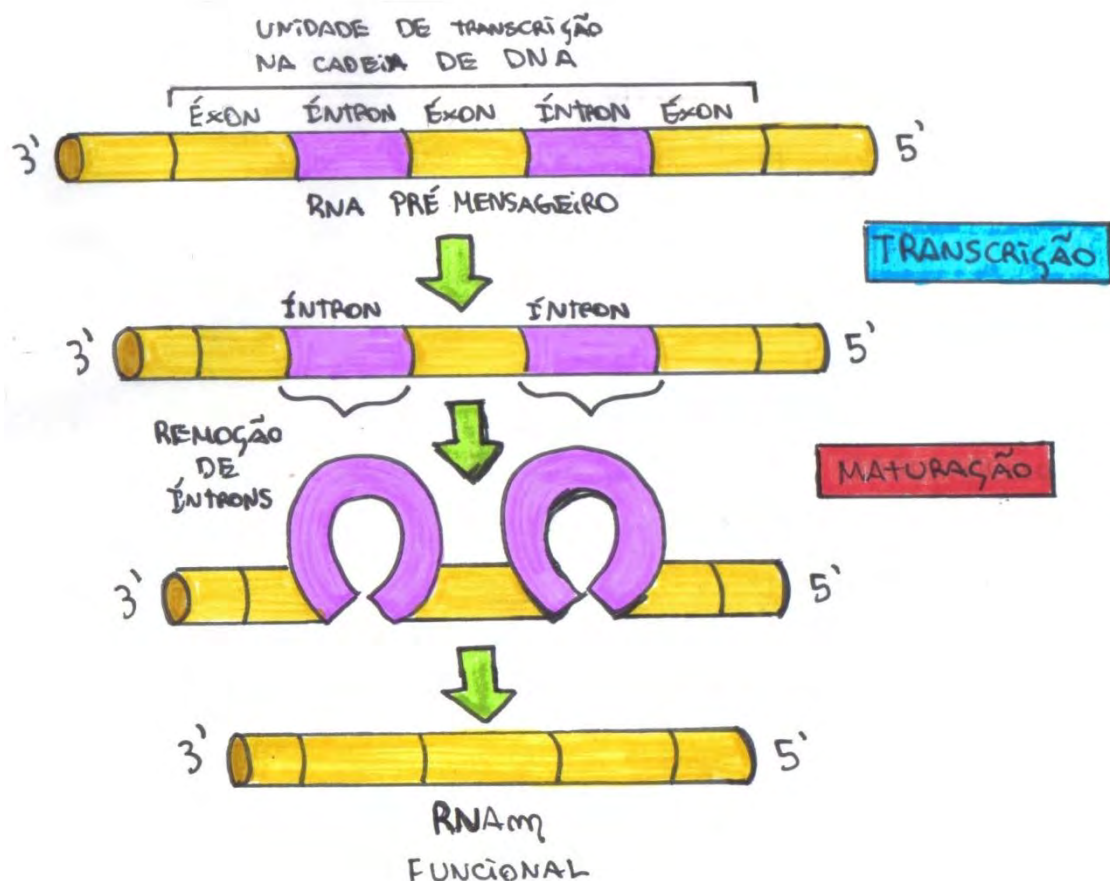 UNIDADE DE TRANSCRIÇÃO
NA CADEIA DE DNA
ÉXON ÍNTRON ÉXON ÍNTRON ÉXON
3' 5'
RNA PRÉ MENSAGEIRO
TRANSCRIÇÃO
ÍNTRON ÍNTRON
3' 5'
REMOÇÃO
DE
ÍNTRONS
MATURAÇÃO
3' 5'
3' 5'
RNAm
FUNCIONAL